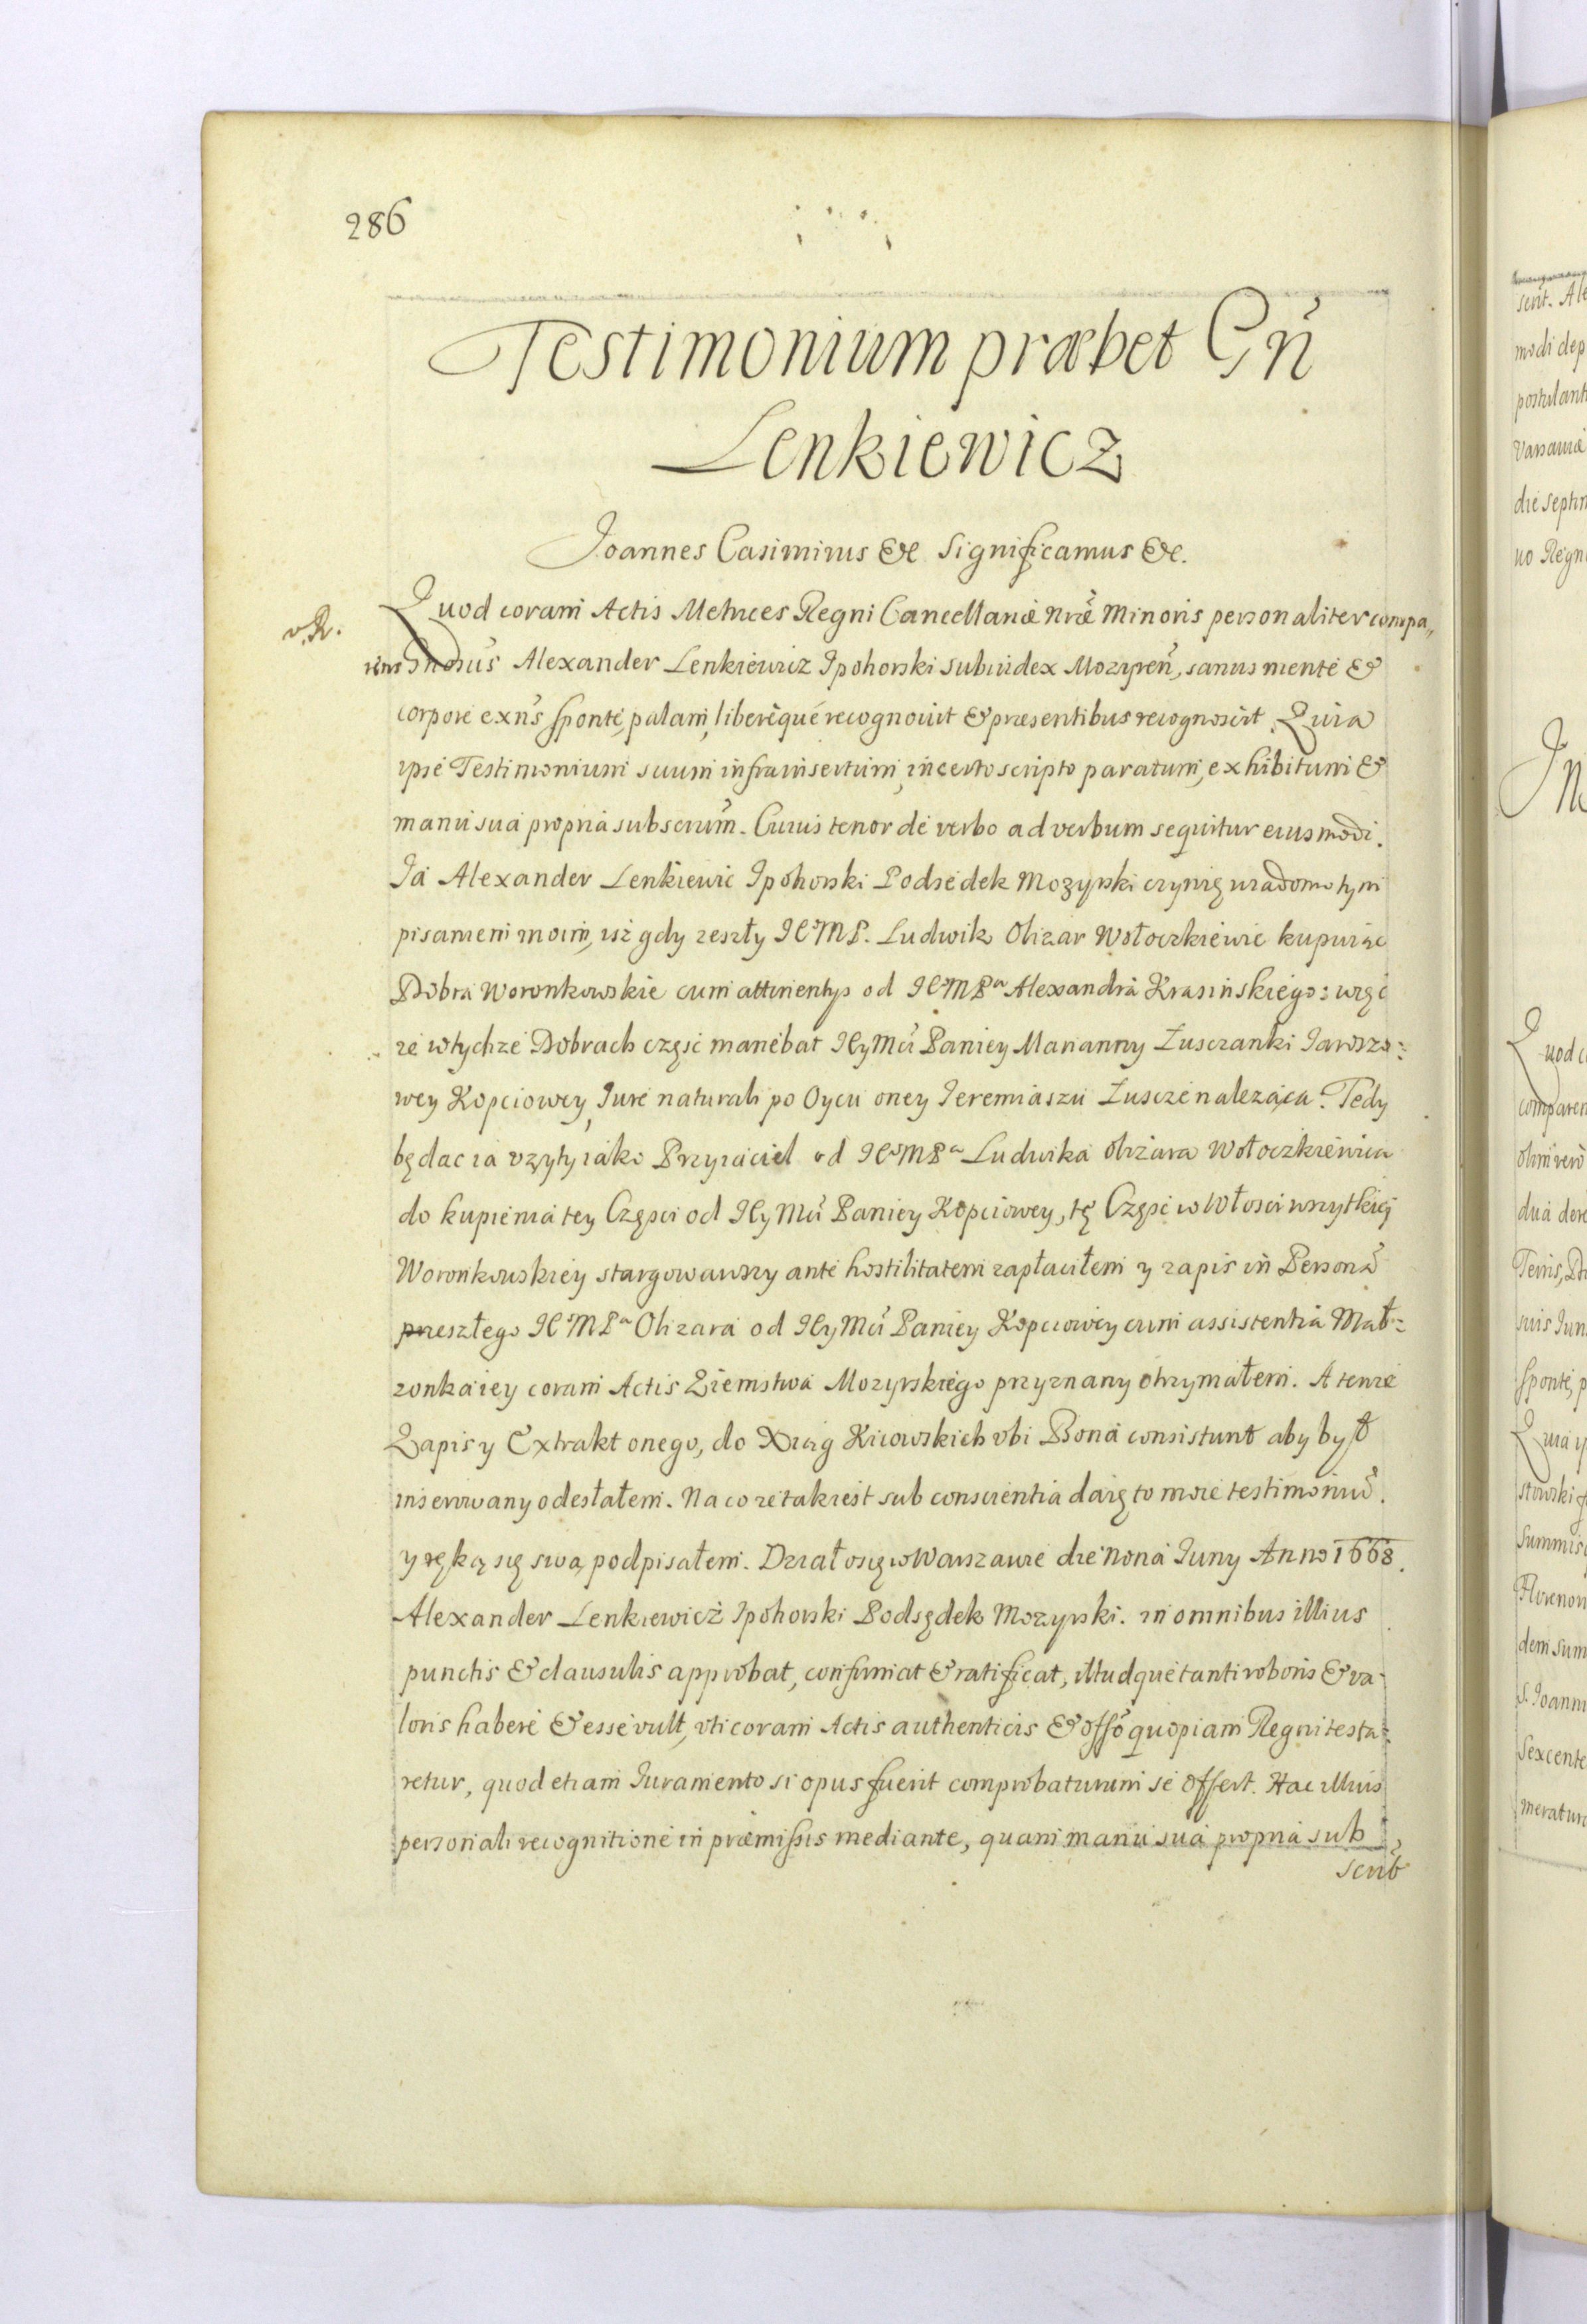 286
Testimonium præbet Gn̄
Lenkiewicz
Joannes Casimirus &c Significamus &c.
v. R.
Quod coram Actis Metrices Regni Cancellariæ nræ Minoris personaliter compa,,
rens Gnosus Alexander Lenkiewicz Ipohorski Subiudex Mozyreñ, sanus mente &
corpore exns sponte, palam, libereque recognouit & præsentibus recognoscit. Quia
ipse Testimonium suum infrainsertum, in certo scripto paratum, exhibitum &
manu sua propria subscrum. Cuius tenor de verbo ad verbum sequitur eiusmodi.
Ja Alexander Lenkiewic Ipohorski Podsedek Mozyrski czynię wiadomo tym
pisaniem moim, isz gdy zeszły JEoMP. Ludwik Olizar Wołoczkiewic kupuiąc
Dobra Woronkowskie cum attinentys od JEoMPa Alexandra Krasinskiego: więc
ze w tychze Dobrach częsc maniebat JEyMći Paniey Marianny Łusczanki Jaroszo:
wey Kopciowey, Jure naturali po Oycu oney Jeremiaszu Łuscze nalezaca. Tedy
będac ia vzyty iako Przyiaciel od JEoMPa Ludwika Olizara Wołoczkiewica
do kupienia tey Częsci od JEyMći Paniey Kopciowey, tę Częsc w Włosci wszytkiej
Woronkowskiey stargowawszy ante hostilitatem zapłaciłem y zapis in Persona
przeszłego JEoMPa Olizara od JEyMći Paniey Kopciowey cum assistentia Mał:
zonka iey coram Actis Ziemstwa Mozyrskiego przyznany otrzymałem. A tenze
Zapis y Extrakt onego, do Xiąg Kiiowskich vbi Bona consistunt aby był
inserowany odesłałem. Na co ze tak iest sub conscientia daię to moie testimoniu.
y ręką się swą podpisałem. Działo się w Warszawie die nona Juny Anno 1668.
Alexander Lenkiewicz Ipohorski Podsędek Mozyrski. in omnibus illius
punctis & clausulis approbat, confirmat & ratificat, illudque tanti roboris & va-
loris habere & esse vult, vti coram Actis authenticis & offo quopiam Regni testa:
retur, quod etiam Juramento si opus fuerit comprobaturum se offert. Hac illius
personali recognitione in præmissis mediante, quam manu sua propria sub
scrib